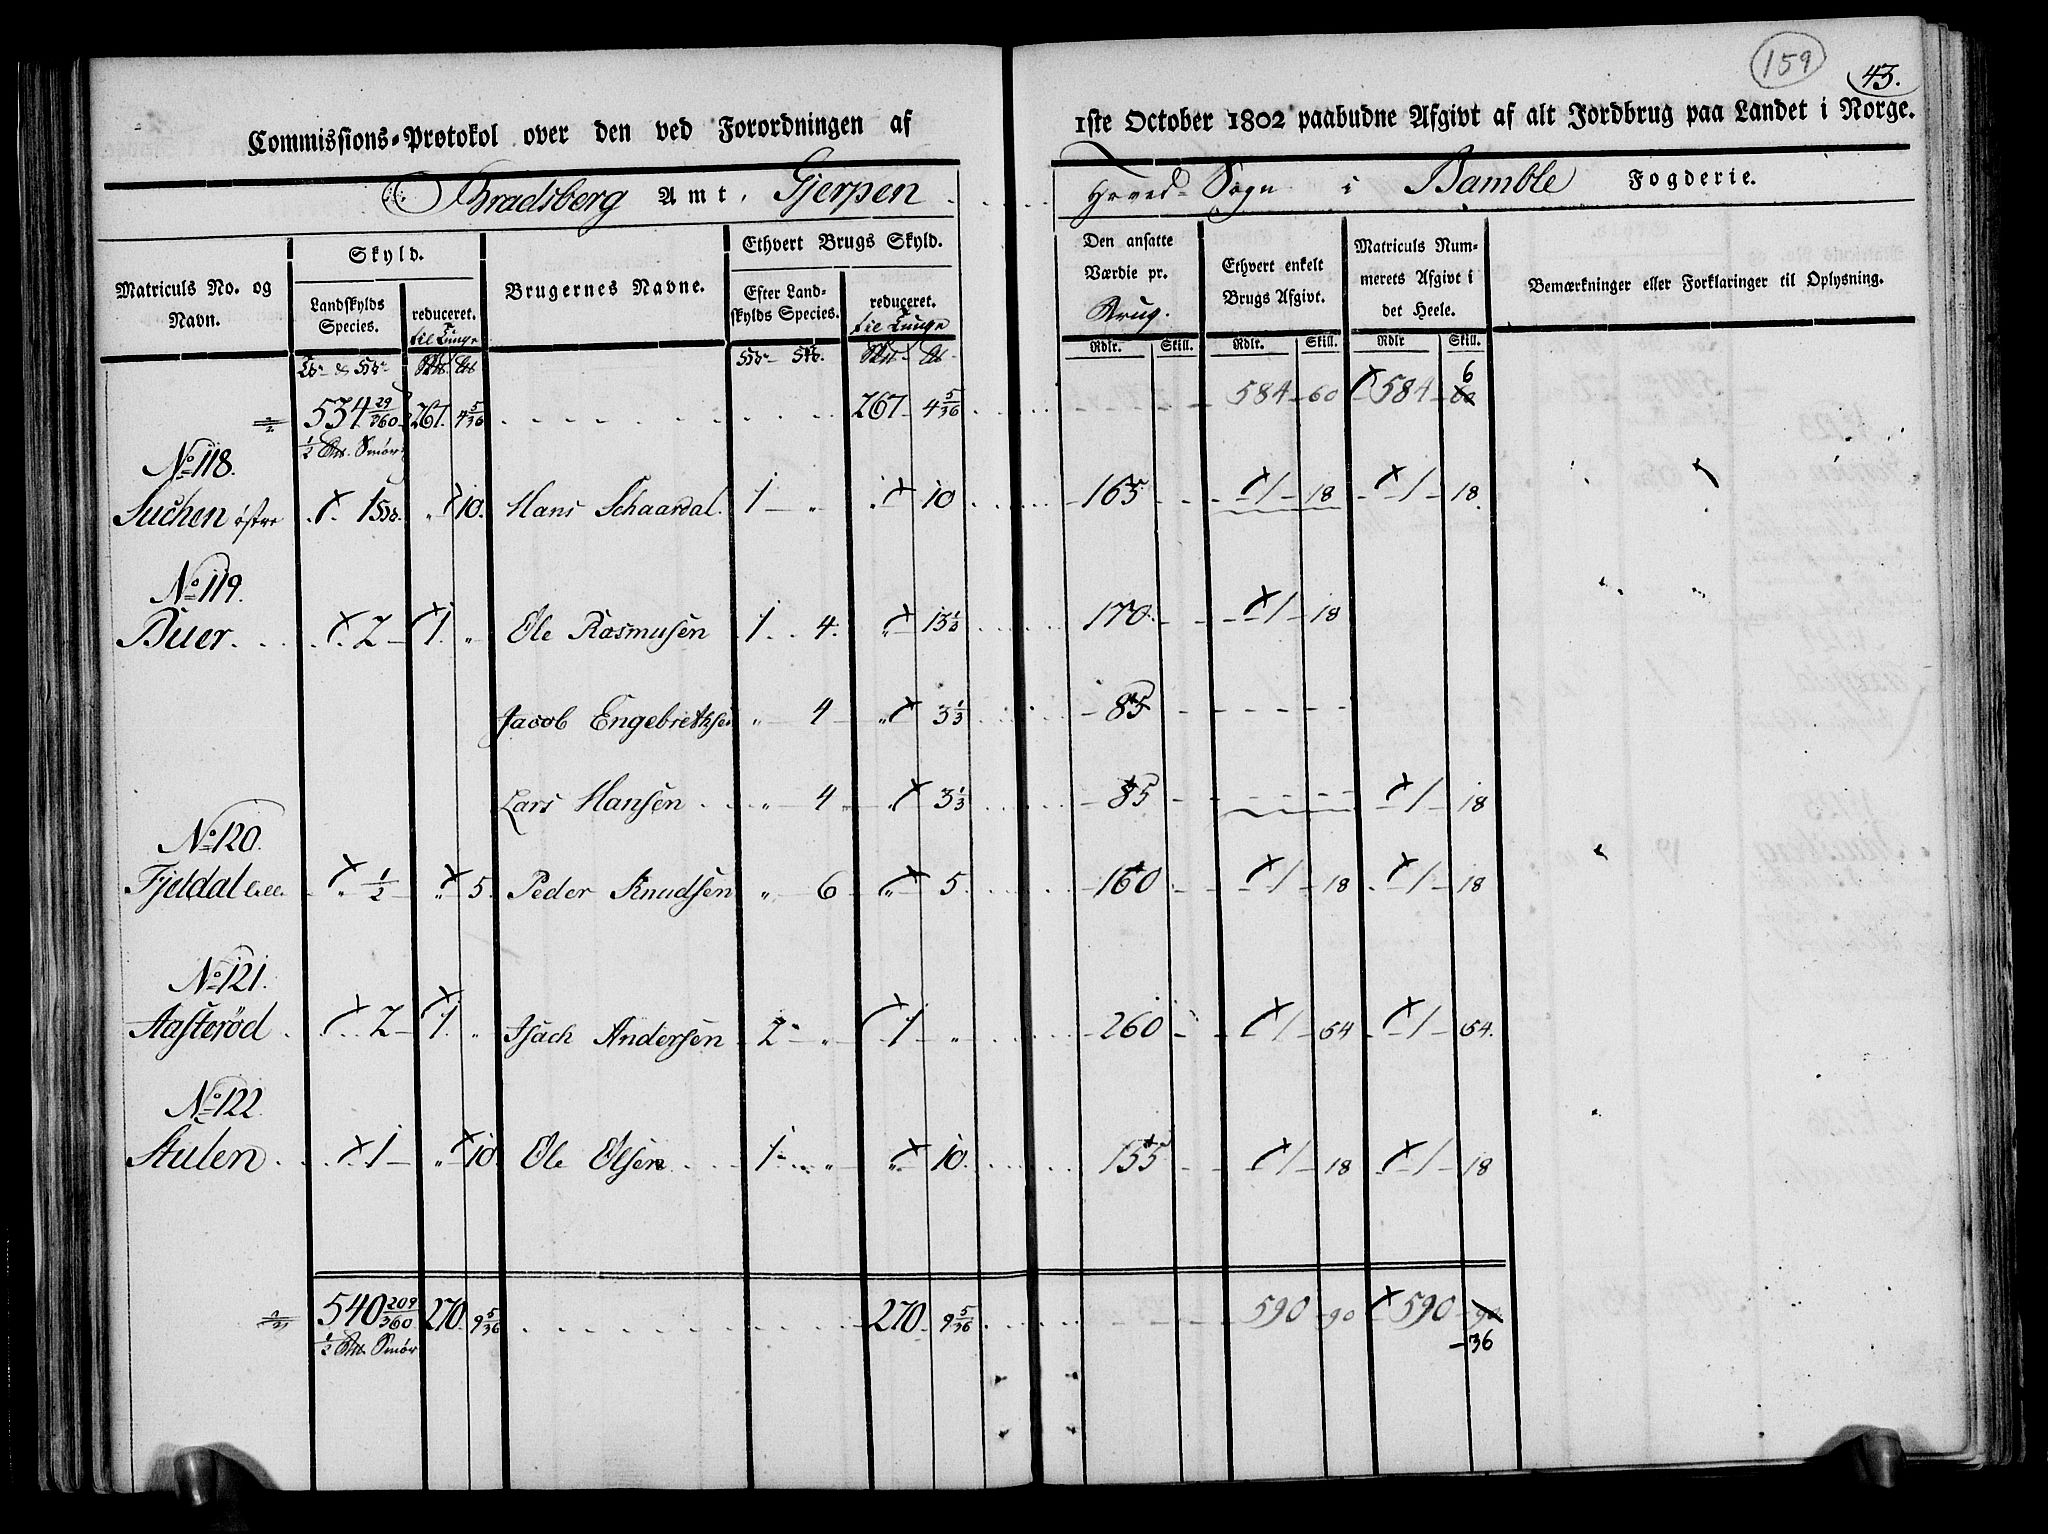 159
43.
Commissions-Protokol over den ved Forordningen af 1ste October 1802 paabudne Afgivt af alt Jordbrug paa Landet i Norge.
Bradsberg Amt, Gjerpen Hoved-Sogn i Bamble Fogderie.
Matriculs No. og Navn. Skyld. Brugernes Navne. Ethvert Brugs Skyld. Den ansatte Værdie pr. Brug. Ethvert enkelt Brugs Afgivt. Matriculs Nummerets Afgivt i det Heele. Bemærkninger eller Forklaringer til Oplysning.
Landskylds Species. reduceret. til Tunge Efter Landskylds Species. reduceret. til Tunge
Rdlr. Skill. Rdlr. Skill. Rdlr Skill.
534 29/360 267. 4 5/36 267 4 5/36 584 60 584 60 6
1/2 Smør
No 118.
Suchen østre 1 10. Hans Schaardal. 1 " " 10 165 1 18 1 18.
No 119.
Buer 2 1. " Ole Rasmusen 1 4. " 13 1/3 170. 1 18
Jacob Engebrethsen " 4 " 3 1/3 85
Lars Hansen " 4 " 3 1/3 85 1 18
No 120.
Fjeldal lille 1/2 " 5. Peder Knudsen " 6 " 5. 160 1 18 1 18
No 121.
Aasterød 2 1. " Isach Andersen 2 " 1 " 260 1 54 1 54.
No 122.
Stulen 1 " 10. Ole Olsen 1 " " 10. 155 1 18 1 18
540 209/360 270. 9 5/36 270 9 5/36 590 90 590 90
1/2 Smør 36